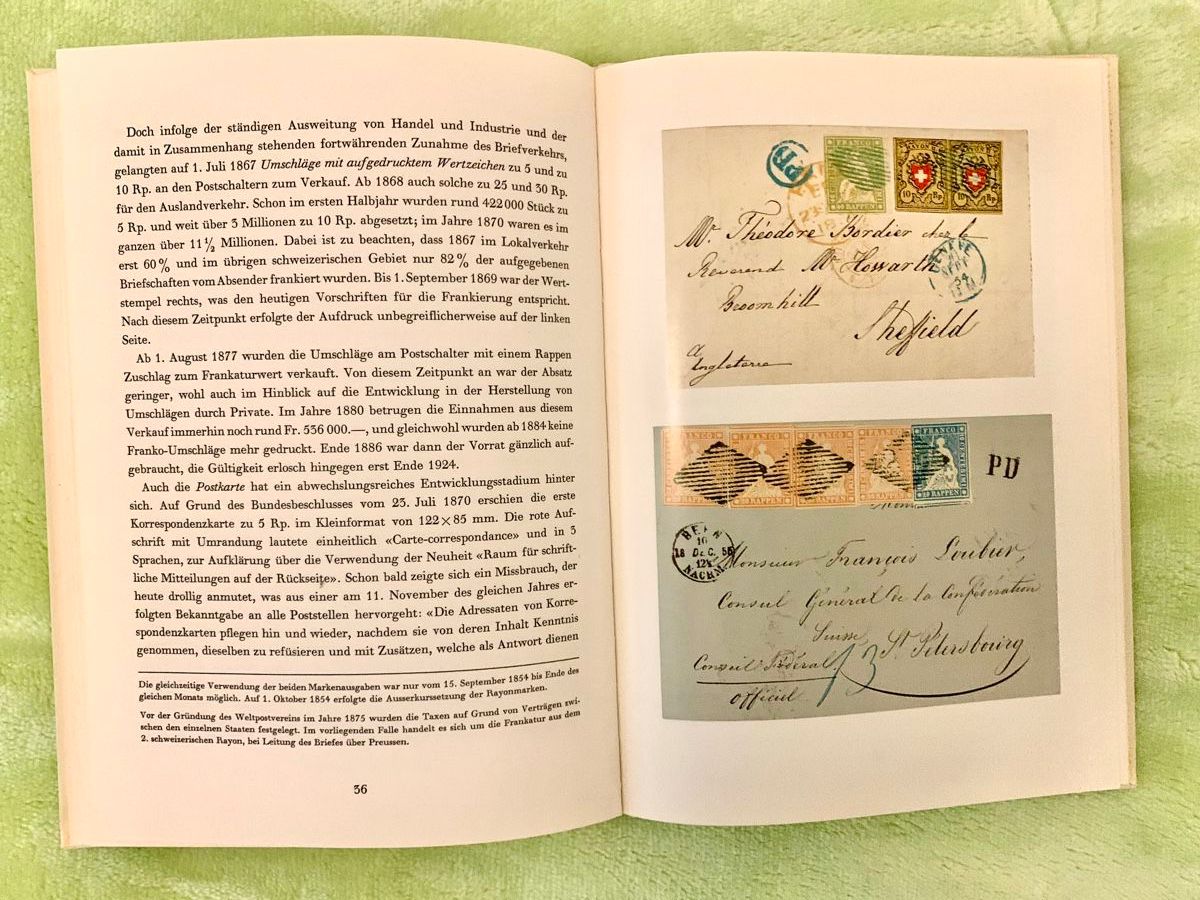 Doch infolge der ständigen Ausweitung von Handel und Industrie und der
damit in Zusammenhang stehenden fortwährenden Zunahme des Briefverkehrs,
gelangten auf 1. Juli 1867 Umschläge mit aufgedrucktem Wertzeichen zu 5 und zu
10 Rp. an den Postschaltern zum Verkauf. Ab 1868 auch solche zu 25 und 30 Rp.
für den Auslandverkehr. Schon im ersten Halbjahr wurden rund 422 000 Stück zu
5 Rp. und weit über 3 Millionen zu 10 Rp. abgesetzt; im Jahre 1870 waren es im
ganzen über 11 ½ Millionen. Dabei ist zu beachten, dass 1867 im Lokalverkehr
erst 60 % und im übrigen schweizerischen Gebiet nur 82 % der aufgegebenen
Briefschaften vom Absender frankiert wurden. Bis 1. September 1869 war der Wert-
stempel rechts, was den heutigen Vorschriften für die Frankierung entspricht.
Nach diesem Zeitpunkt erfolgte der Aufdruck unbegreiflicherweise auf der linken
Seite.
Ab 1. August 1877 wurden die Umschläge am Postschalter mit einem Rappen
Zuschlag zum Frankaturwert verkauft. Von diesem Zeitpunkt an war der Absatz
geringer, wohl auch im Hinblick auf die Entwicklung in der Herstellung von
Umschlägen durch Private. Im Jahre 1880 betrugen die Einnahmen aus diesem
Verkauf immerhin noch rund Fr. 536 000.—, und gleichwohl wurden ab 1884 keine
Franko-Umschläge mehr gedruckt. Ende 1886 war dann der Vorrat gänzlich auf-
gebraucht, die Gültigkeit erlosch hingegen erst Ende 1924.
Auch die Postkarte hat ein abwechslungsreiches Entwicklungsstadium hinter
sich. Auf Grund des Bundesbeschlusses vom 23. Juli 1870 erschien die erste
Korrespondenzkarte zu 5 Rp. im Kleinformat von 122 × 85 mm. Die rote Auf-
schrift mit Umrandung lautete einheitlich «Carte-correspondance» und in 3
Sprachen, zur Aufklärung über die Verwendung der Neuheit «Raum für schrift-
liche Mitteilungen auf der Rückseite». Schon bald zeigte sich ein Missbrauch, der
heute drollig anmutet, was aus einer am 11. November des gleichen Jahres er-
folgten Bekanntgabe an alle Poststellen hervorgeht: «Die Adressaten von Korre-
spondenzkarten pflegen hin und wieder, nachdem sie von deren Inhalt Kenntnis
genommen, dieselben zu refüsieren und mit Zusätzen, welche als Antwort dienen
Die gleichzeitige Verwendung der beiden Markenausgaben war nur vom 15. September 1854 bis Ende des
gleichen Monats möglich. Auf 1. Oktober 1854 erfolgte die Ausserkurssetzung der Rayonmarken.
Vor der Gründung des Weltpostvereins im Jahre 1875 wurden die Taxen auf Grund von Verträgen zwi-
schen den einzelnen Staaten festgelegt. Im vorliegenden Falle handelt es sich um die Frankatur aus dem
2. schweizerischen Rayon, bei Leitung des Briefes über Preussen.
36
PD
FRANCO
40 RAPPEN
RAYON
10 Rp.
RAYON
10 Rp.
Mr. Théodore Bordier chez le
Reverend Mr Howarth
Broomhill
Sheffield
Angleterre
GENÈVE
54
FRANCO
20 RAPPEN
FRANCO
20 RAPPEN
FRANCO
20 RAPPEN
FRANCO
20 RAPPEN
FRANCO
10 RAPPEN
PD
BERN
10
DEC.
NACHM.
Monsieur François Loubier,
Consul Général de la Confédération
Suisse
St. Petersbourg
Conseil Fédéral
Officiel
13